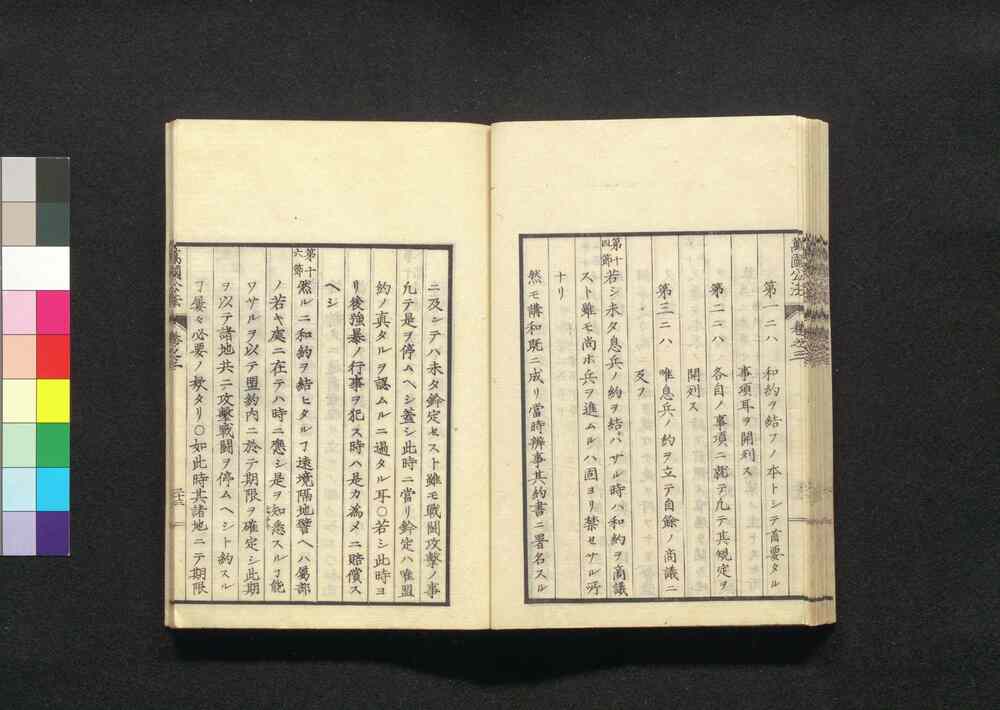 萬國公法 卷之三
第一ニハ 和約ヲ結フノ本トシテ首要タル
事項耳ヲ開列ス
第二ニハ 各自ノ事項ニ就テ凡テ其規定ヲ
開列ス
第三ニハ 唯息兵ノ約ヲ立テ自餘ノ商議ニ
及ス
第十四節 若シ未タ息兵ノ約ヲ結ハサル時ハ和約ヲ商議
スト雖モ尚ホ兵ヲ進ムルハ固ヨリ禁セサル所
ナリ
然モ講和既ニ成リ當時辨事其約書ニ署名スル
ニ及シテハ未タ鈐定セスト雖モ戰鬪攻擊ノ事
凡テ是ヲ停ムヘシ蓋シ此時ニ當リ鈐定ハ唯盟
約ノ真タルヲ認ムルニ過タル耳○若シ此時ヨ
リ後強暴ノ行事ヲ犯ス時ハ是カ為メニ賠償ス
ヘシ
第十六節 然ルニ和約ヲ結ヒタルヿ遠境隔地譬ヘハ屬部
ノ若キ處ニ在テハ時ニ應シ是ヲ知悉スルヿ能
ワサルヲ以テ盟約內ニ於テ期限ヲ確定シ此期
ヲ以テ諸地共ニ攻擊戰鬪ヲ停ムヘシト約スル
ヿ屢々必要ノ タリ○如此時其諸地ニテ期限
萬國公法 卷之三